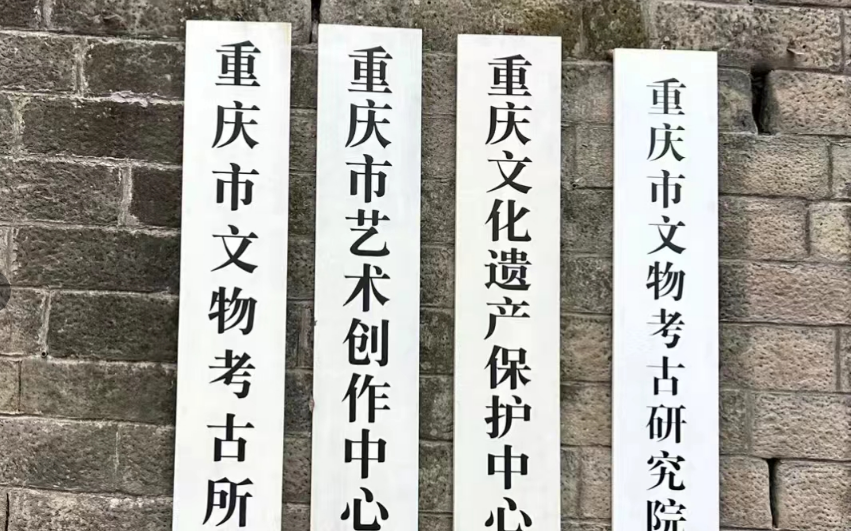 重庆市文物考古所
重庆市艺术创作中心
重庆文化遗产保护中心
重庆市文物考古研究院